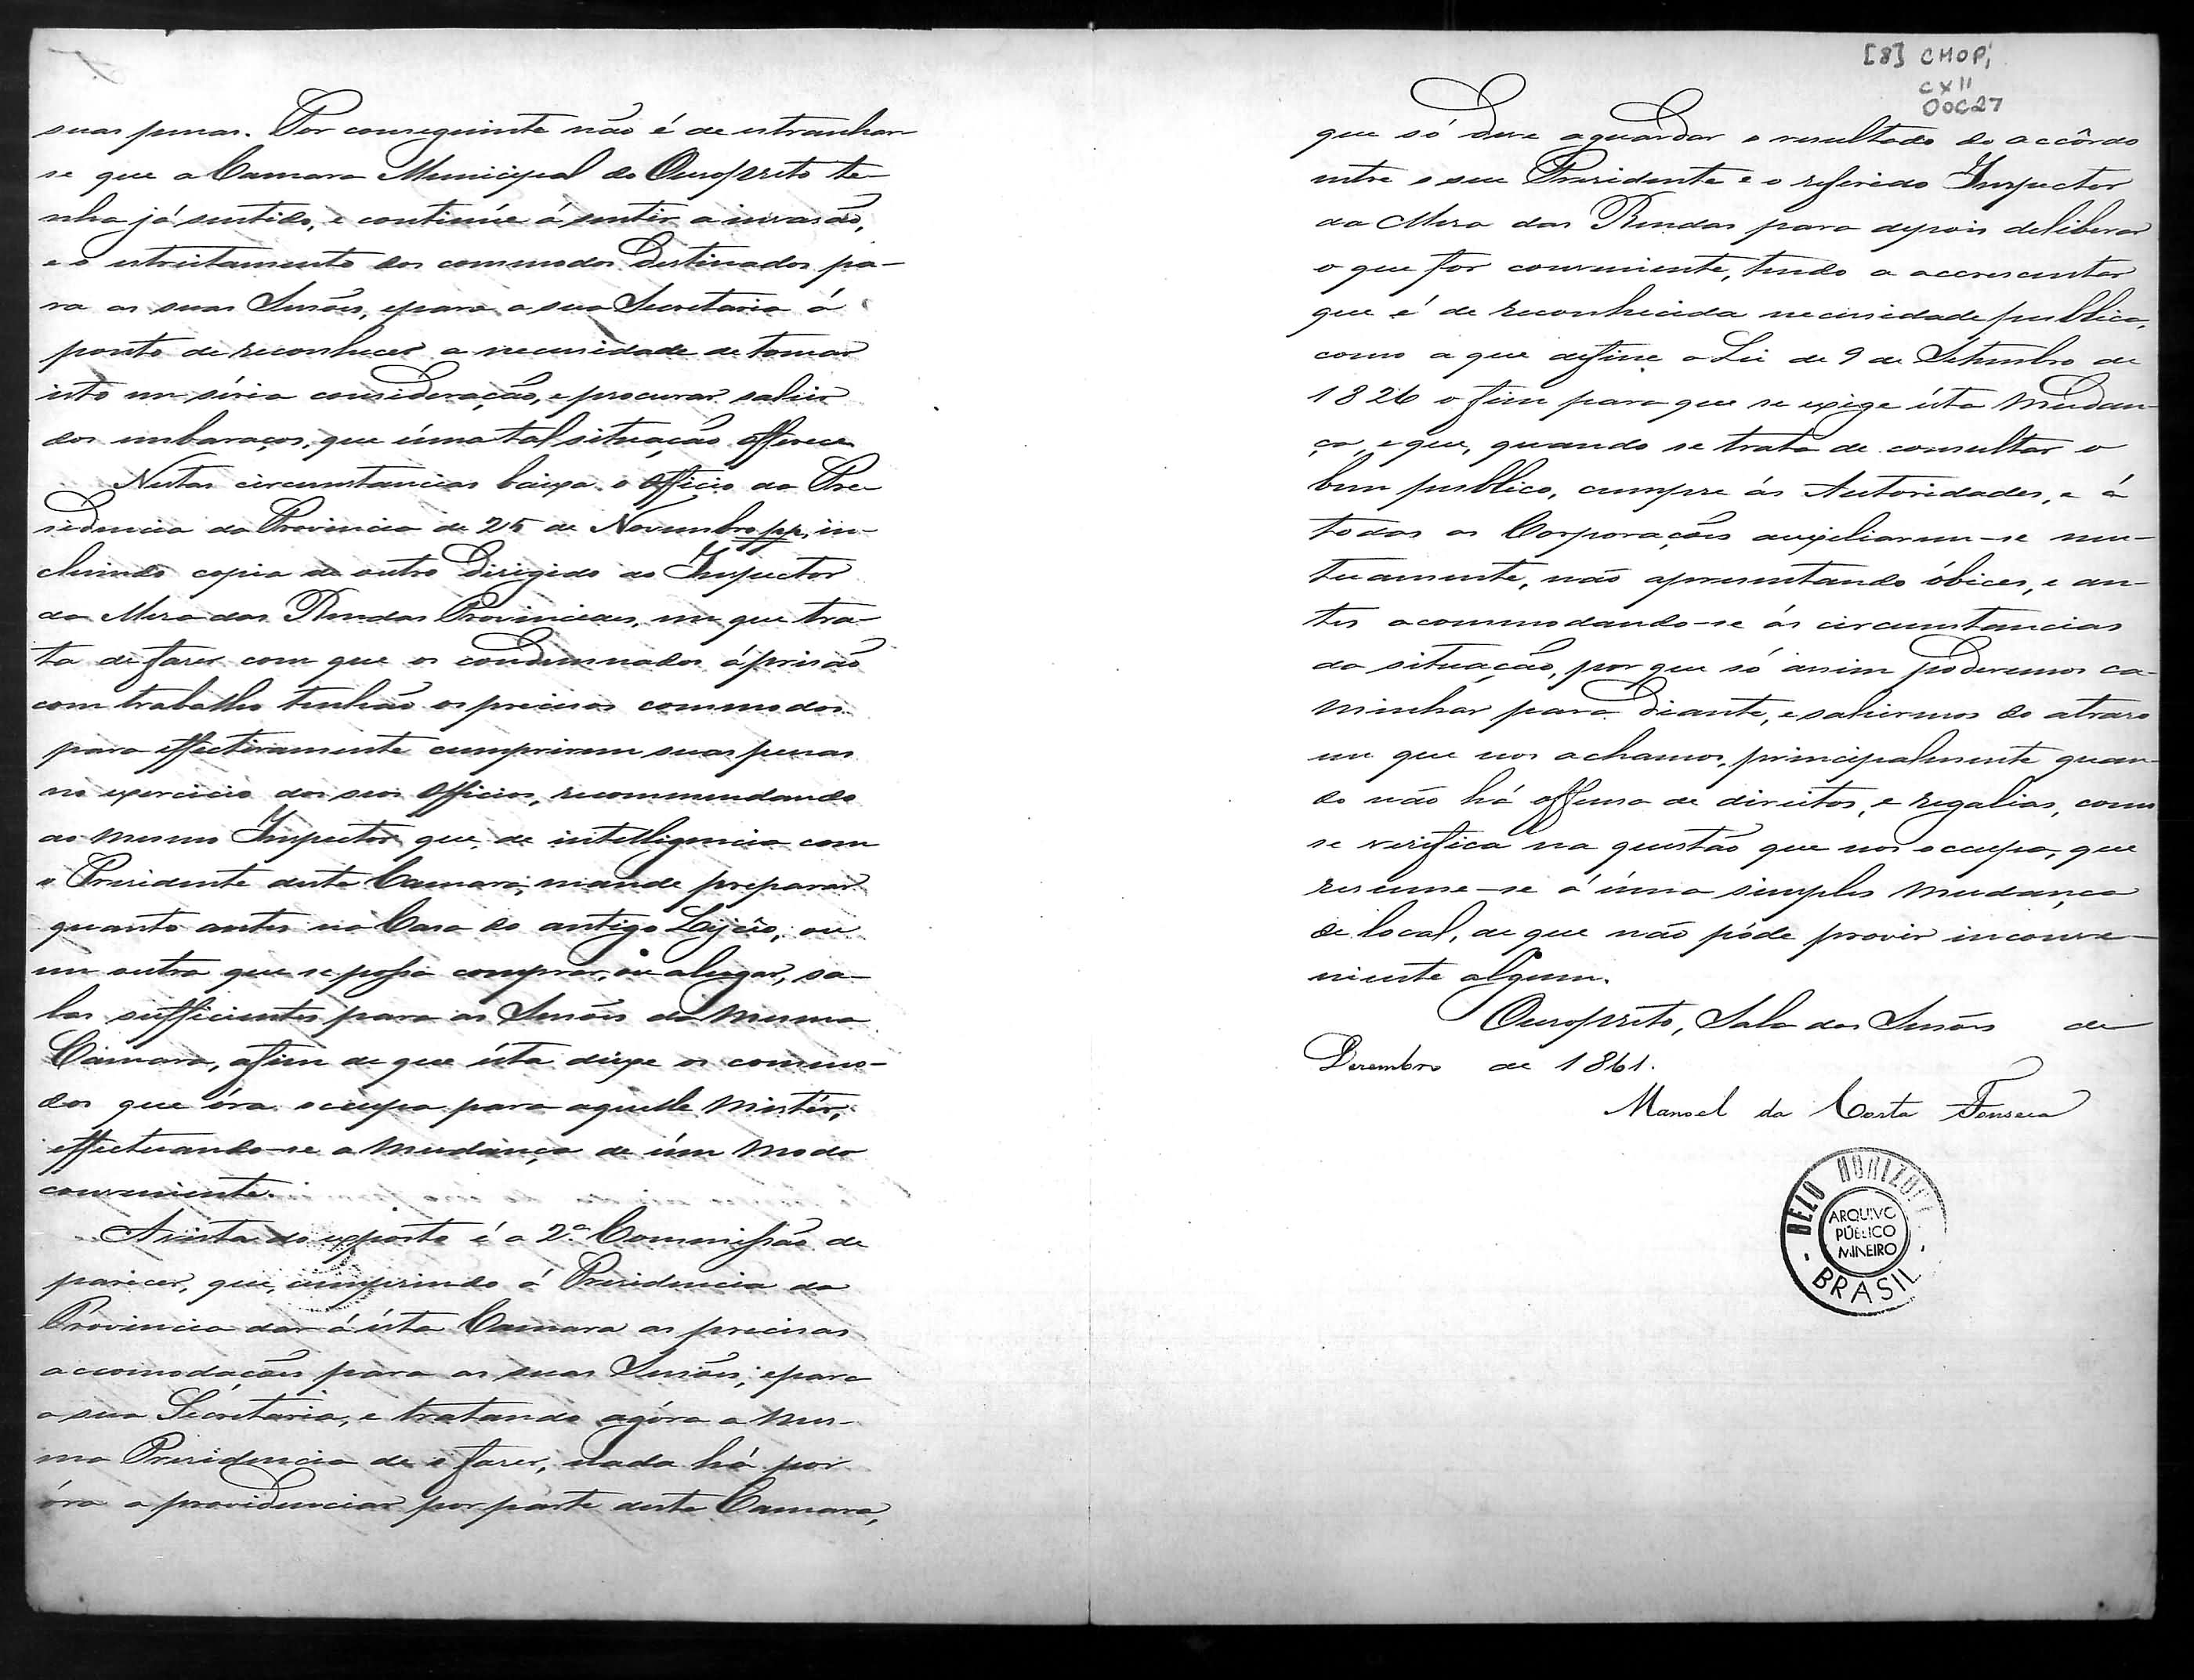 suas penas. Por conseguinte não é de extranhar
se que a Camara Municipal do Ouropreto te-
nha já sentido, e continúe á sentir a invasão,
e o estreitamento dos commodos destinados pa-
ra as suas Sessões, e para a sua Secretaria á
ponto de reconhecer a necessidade de tomar
isto em séria consideração, e procurar sahir
dos embaraços, que úma tal situação offerece.
Nestas circumstancias baixa o Officio da Pre-
sidencia da Provincia de 25 de Novembro pp, in-
cluindo copia de outro dirigido ao Inspector
da Mesa das Rendas Provinciaes, em que tra-
ta de fazer com que os condemnados á prisão
com trabalho tenhão os precisos commodos
para effectivamente cumprirem suas penas
no exercicio dos seos Officios, recommendando
ao mesmo Inspector que, de intelligencia com
o Presidente desta Camara, mande preparar
quanto antes na Casa do antigo Lycêo, ou
em outra que se possa comprar, ou alugar, sa-
las sufficientes para as Sessões da mesma
Câmara, afim de que ésta deixe os commo-
dos que óra occupa para aquelle mistér,
effectuando-se a mudança de úm modo
conveniente.
A vista do exposto é a 2ª Commissão de
parecer, que, cumprindo á Presidencia da
Provincia dar á ésta Camara as precisas
accomodações para as suas Sessões, e para
a sua Secretaria, e tratando agóra a mes-
ma Presidencia de o fazer, nada há por
óra a providenciar por parte desta Camara,
[8] CMOP,
CX 11
DOC 27
que só deve aguardar o resultado do accôrdo
entre o seu Presidente e o referido Inspector
da Mesa das Rendas para depois deliberar
o que for conveniente, tendo a accrescentar
que é de reconhecida necessidade publica,
como a que define a Lei de 9 de Setembro de
1826 o fim para que se exige ésta mudan-
ça, e que, quando se trata de consultar o
bem publico, cumpre ás Autoridades, e á
todas as Corporações auxiliarem-se mu-
tuamente, não apresentando óbices, e an-
tes acommodando-se ás circumstancias
da situação, por que só assim poderemos ca-
minhar para diante, e sahirmos do atraso
em que nos achamos, principalmente quan-
do não há offensa de direitos, e regalias, como
se verifica na questão que nos occupa, que
resume-se á úma simples mudança
de local, de que não póde provir inconve-
niente algum.
Ouropreto, Sala das Sessões de
Dezembro de 1861.
Manoel da Costa Fonseca
BELO HORIZONTE
ARQUIVO
PÚBLICO
MINEIRO
BRASIL